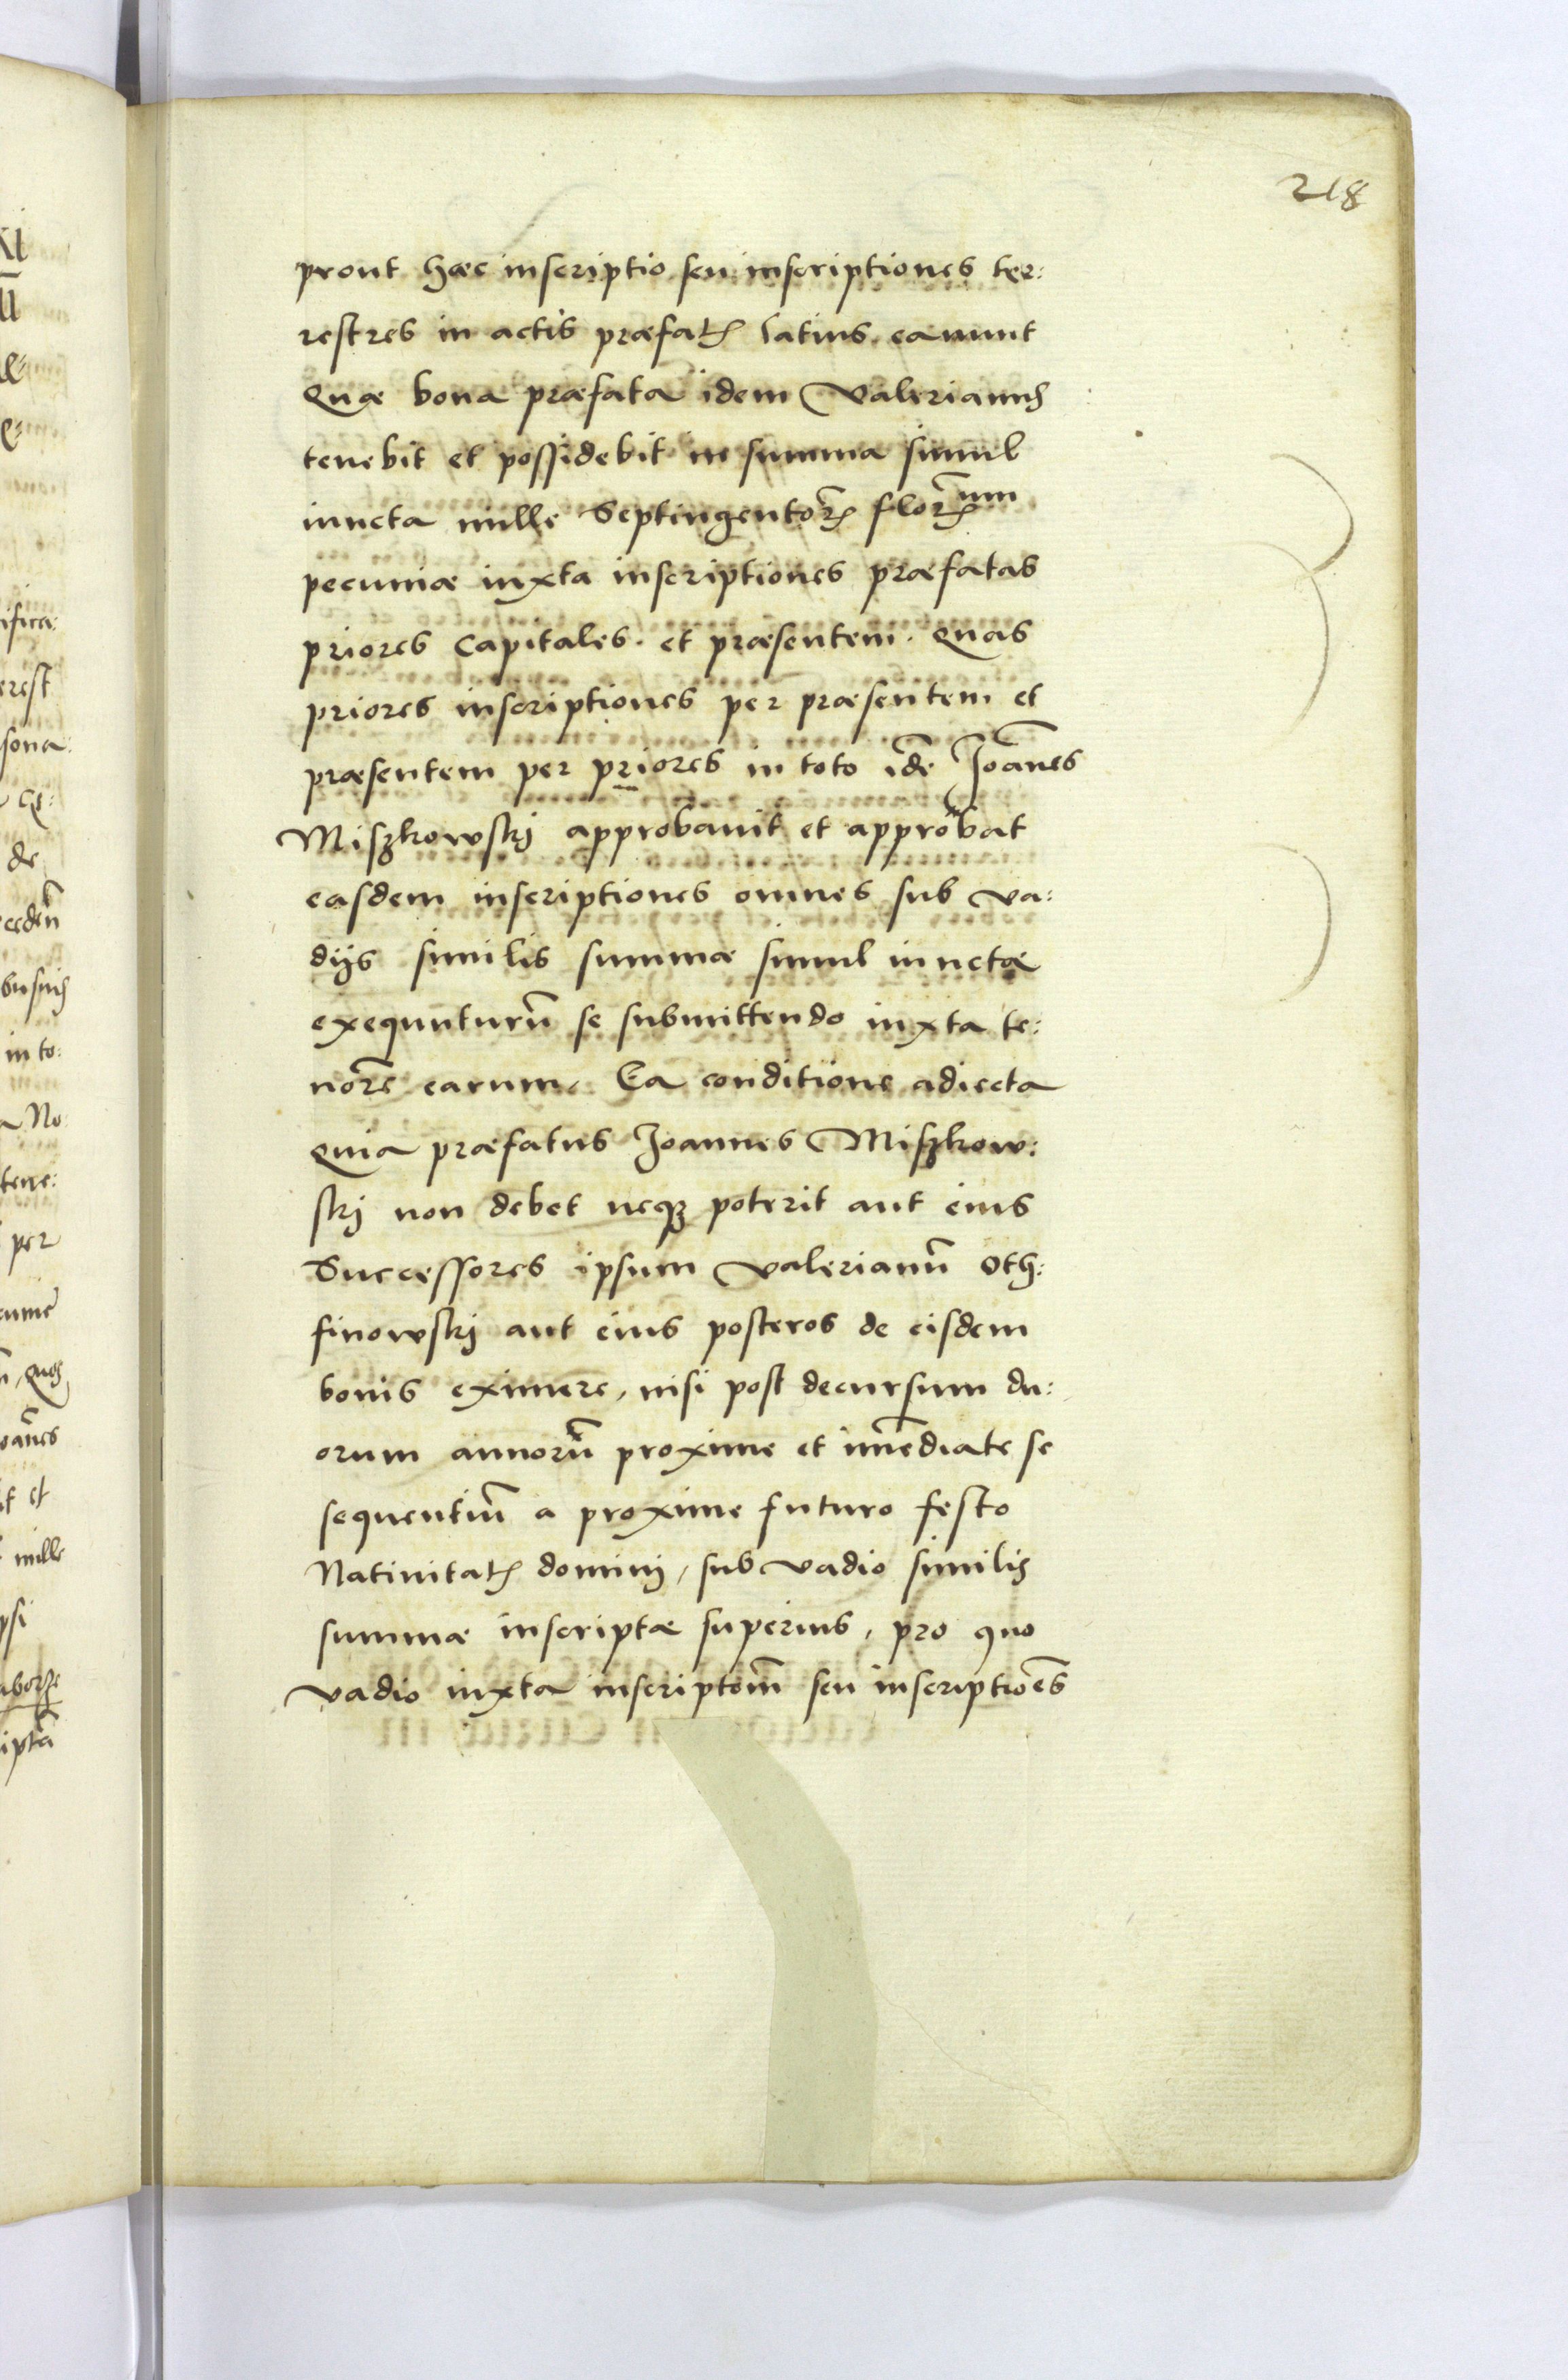 218
prout haec inscriptio seu inscriptiones ter:
restres in actis praefatis latius canunt
Quae bona praefata idem Valerianus
tenebit et possidebit in summa simul
iuncta mille Septingentorum florenum
pecuniae iuxta inscriptiones praefatas
priores capitales. et praesentem. Quas
priores inscriptiones per praesentem et
praesentem per priores in toto idē Joānes
Miszkowskj approbauit et approbat
easdem inscriptiones omnes sub va:
dijs similis summae simul iunctae
exequuturū se submittendo iuxta te:
norē earum. Ea conditione adiecta
quia praefatus Joannes Miszkow:
skj non debet neqz poterit aut eius
Successores ipsum Valerianū Oth:
finowskj aut eius posteros de eisdem
bonis eximere, nisi post decursum du:
orum annorū proxime et imēdiate se
sequentiū a proxime futuro festo
Natiuitatis dominj, sub vadio similis
summae inscriptae superius, pro quo
vadio iuxta inscriptōm seu inscriptioēs